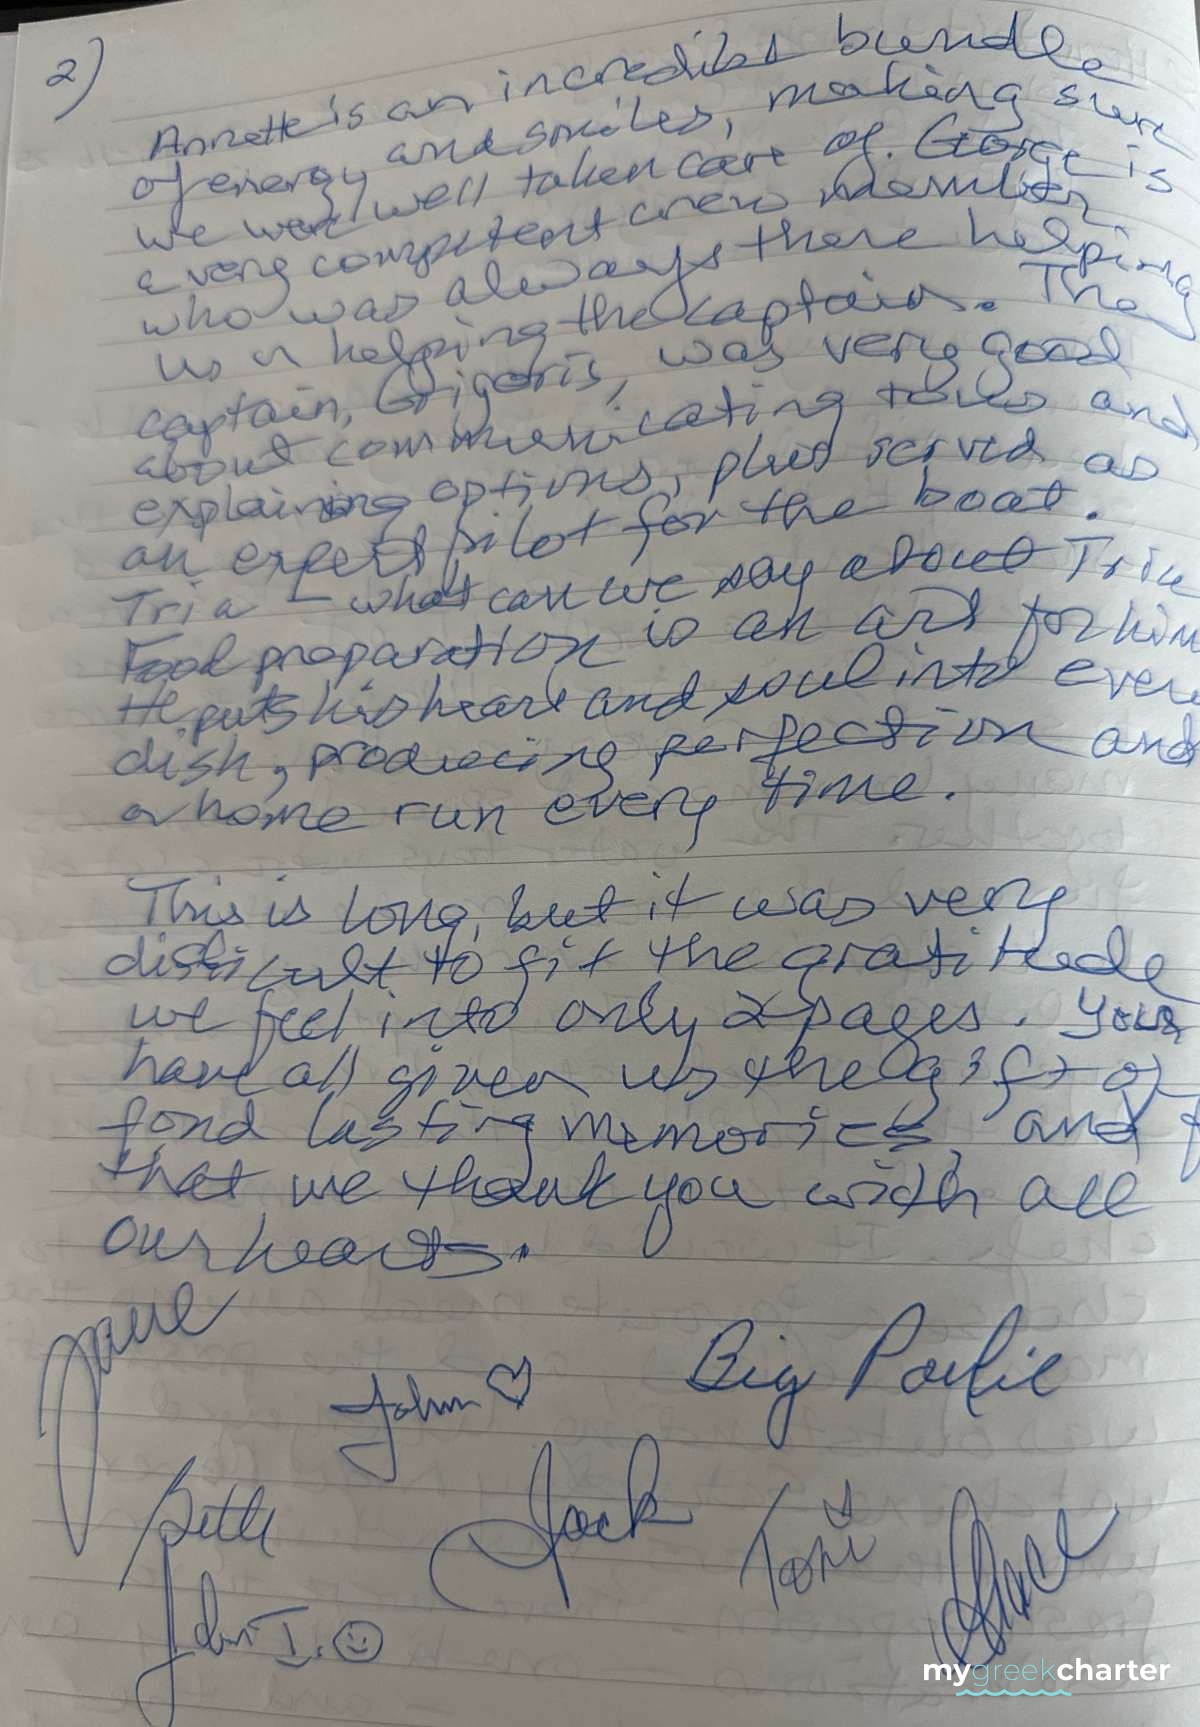 2)
Annette is an incredible bundle
of energy and smiles, making sure
we were well taken care of. George is
a very competent crew member
who was always there helping
us or helping the captain. The
captain, Grigoris, was very good
about communicating to us and
explaining options, plus served as
an expert pilot for the boat.
Tria - what can we say about Tria
Food preparation is an art for him
He puts his heart and soul into every
dish, producing perfection and
a home run every time.
This is long, but it was very
difficult to fit the gratitude
we feel into only 2 pages. You
have all given us the gift of
fond lasting memories, and f
that we thank you with all
our hearts.
John ♡
Big Paulie
Beth
Jack
Toni
John I. ☺
mygreekcharter